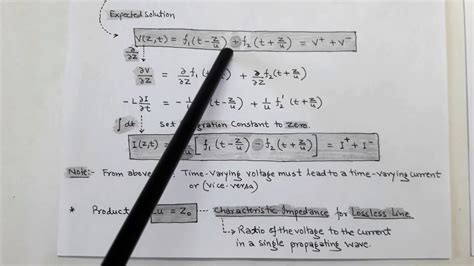 Expected Solution
V(z,t) = f₁(t-z/u) + f₂(t+z/u) = V⁺ + V⁻
∂/∂z
∂V/∂z = ∂/∂z f₁(t-z/u) + ∂/∂z f₂(t+z/u)
-L ∂I/∂t = -1/u (t-z/u) + 1/u f₂'(t+z/u)
∫dt Set Constant to Zero.
I(z,t) = [f₁(t-z/u) - f₂(t+z/u)] = I⁺ + I⁻
Note:- From above Time-varying voltage must lead to a time-varying current
or (vice-versa)
* Product Lu = Z₀ Characteristic Impedance for Lossless Line
Radio of the voltage to the current
in a single propagating wave.